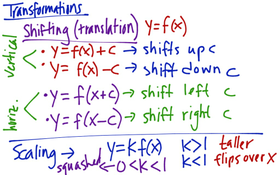 Transformations
Shifting (translation) y=f(x)
vertical
• y = f(x)+c → shifts up c
• y = f(x)-c → shift down c
horiz.
• y = f(x+c) → shift left c
• y = f(x-c) → shift right c
Scaling → y=kf(x) k>1 taller
squashed ← 0<k<1 k<1 flips over x